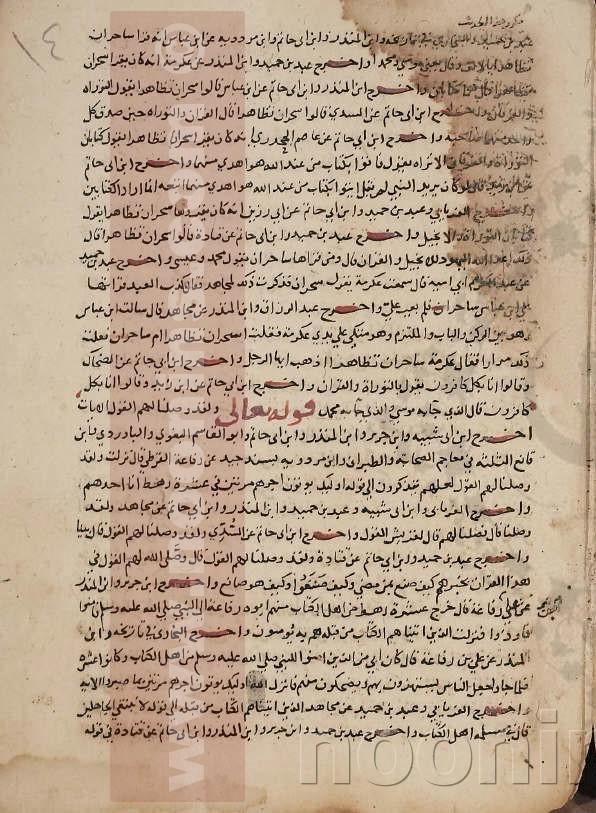 عبد بن حميد والبخاري في تاريخه وابن المنذر وابن ابي حاتم وابن مردويه عن ابن عباس انه قرا ساحران
تظاهرا بالالف وقال يعني موسى ومحمد واخرج عبد بن حميد وابن المنذر عن عكرمة انه كان يقرا سحران
تظاهرا واخرج ابن المنذر وابن ابي حاتم عن ابن عباس قالوا سحران تظاهرا يقول التوراه
والفرقان واخرج ابن ابي حاتم عن السدي قالوا سحران تظاهرا قال القران والتوراه حين صدق كل
واحد منهما صاحبه واخرج ابن ابي حاتم عن عاصم الجحدري انه كان يقرا سحران تظاهرا يقول كتابان
التوراة والفرقان الا تراه يقول فاتوا بكتاب من عند الله هو اهدى منهما واخرج ابن ابي حاتم
لو كان يريد النبي لم يقل ايتوا بكتاب من عند الله هو اهدى منهما اتبعه انما اراد الكتابين
واخرج الفريابي وعبد بن حميد وابن ابي حاتم عن ابي رزين انه كان يقروها سحران تظاهرا يقول
كتابان التوراة والانجيل واخرج عبد بن حميد وابن ابي حاتم عن قتادة قالوا سحران تظاهرا قال
ذلك اعداء الله اليهود للانجيل والقران قال ومن قراها ساحران يقول محمد وعيسى واخرج عبد بن حميد
عن عبد الكريم ابي امية قال سمعت عكرمة يقول سحران فذكرت ذلك لمجاهد فقال كذب العبد قراتها
على ابن عباس ساحران فلم يعب علي واخرج عبد الرزاق وابن المنذر عن مجاهد قال سالت ابن عباس
وهو بين الركن والباب والملتزم وهو متكي على يدي عكرمة فقلت اسحران تظاهرا ام ساحران فقلت
ذلك مرارا فقال عكرمة ساحران تظاهرا اذهب ايها الرجل واخرج ابن ابي حاتم عن الضحاك
وقالوا انا بكل كافرون يقول بالتوراة والقران واخرج ابن ابي حاتم عن ابن زيد وقالوا انا بكل
كافرون قال الذي جا به موسى والذي جا به محمد قوله تعالى ولقد وصلنا لهم القول الايات
اخرج ابن ابي شيبه وابن جرير وابن المنذر وابن ابي حاتم وابو القاسم البغوي والباوردي وابن
قانع الثلثة في معاجم الصحابة والطبراني وابن مردويه بسند جيد عن رفاعة القرظي قال نزلت ولقد
وصلنا لهم القول لعلهم يتذكرون الى قوله اوليك يوتون اجرهم مرتين في عشرة رهط انا احدهم
واخرج الفريابي وابن ابي شيبه وعبد بن حميد وابن المنذر وابن ابي حاتم عن مجاهد ولقد
وصلنا قال فصلنا لهم قال لقريش القول واخرج ابن ابي حاتم عن السدي ولقد وصلنا لهم القول قال بينا
واخرج عبد بن حميد وابن ابي حاتم عن قتادة ولقد وصلنا لهم القول قال وصل الله لهم القول في
هذا القران يخبرهم كيف صنع بمن مضى وكيف صنعوا وكيف هو صانع واخرج ابن جرير وابن المنذر
عن علي بن رفاعة قال خرج عشرة رهط من اهل الكتاب منهم ابو رفاعة الى النبي صلى الله عليه وسلم فامنوا
فاوذوا فنزلت الذين اتيناهم الكتاب من قبله هم به يومنون واخرج البخاري في تاريخه وابن
المنذر عن علي بن رفاعة قال كان ابي من الذين امنوا بالنبي صلى الله عليه وسلم من اهل الكتاب وكانوا عشرة
فلما جاوا جعل الناس يستهزون بهم ويضحكون منهم فانزل الله اوليك يوتون اجرهم مرتين بما صبروا الاية
واخرج الفريابي وعبد بن حميد عن مجاهد الذين اتيناهم الكتاب من قبله الى قوله لا نبتغي الجاهلين
قال في مسلمة اهل الكتاب واخرج عبد بن حميد وابن جرير وابن المنذر وابن ابي حاتم عن قتادة في قوله